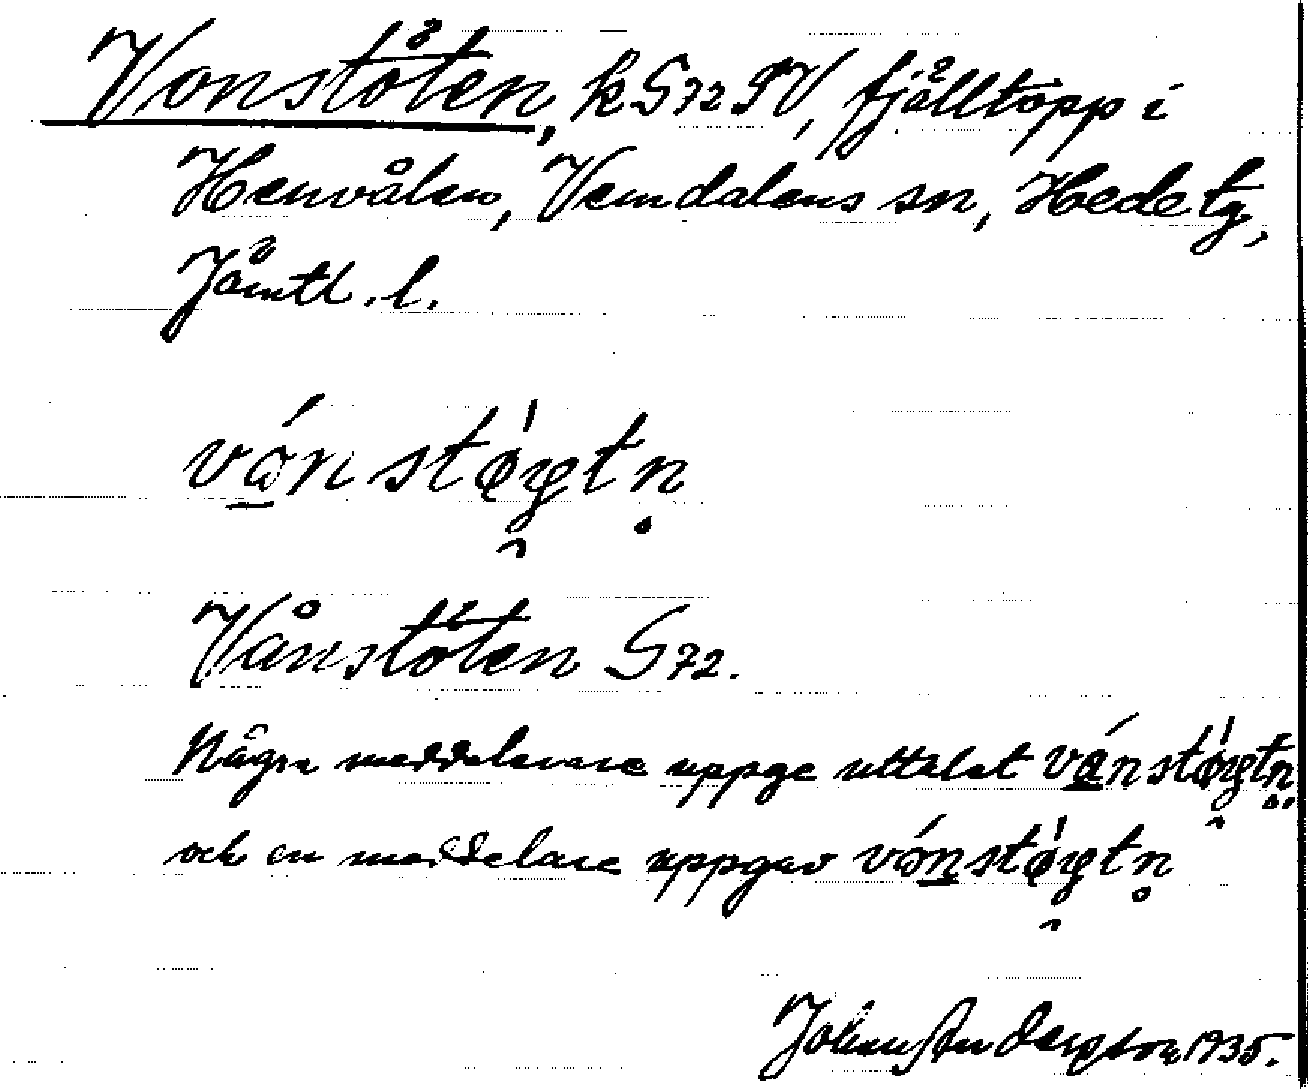 Vonstöten, k S72 SV, fjälltopp i
Henvålen, Vemdalens sn, Hede tg,
Jämtl. l.
vó̱nstø̀y̯tn̥
Vånstöten S72.
Några meddelare uppge uttalet vá̱nstø̀y̯tn̥
och en meddelare uppgav vón̠stø̀y̯tn̥
Johan Andersson 1935.